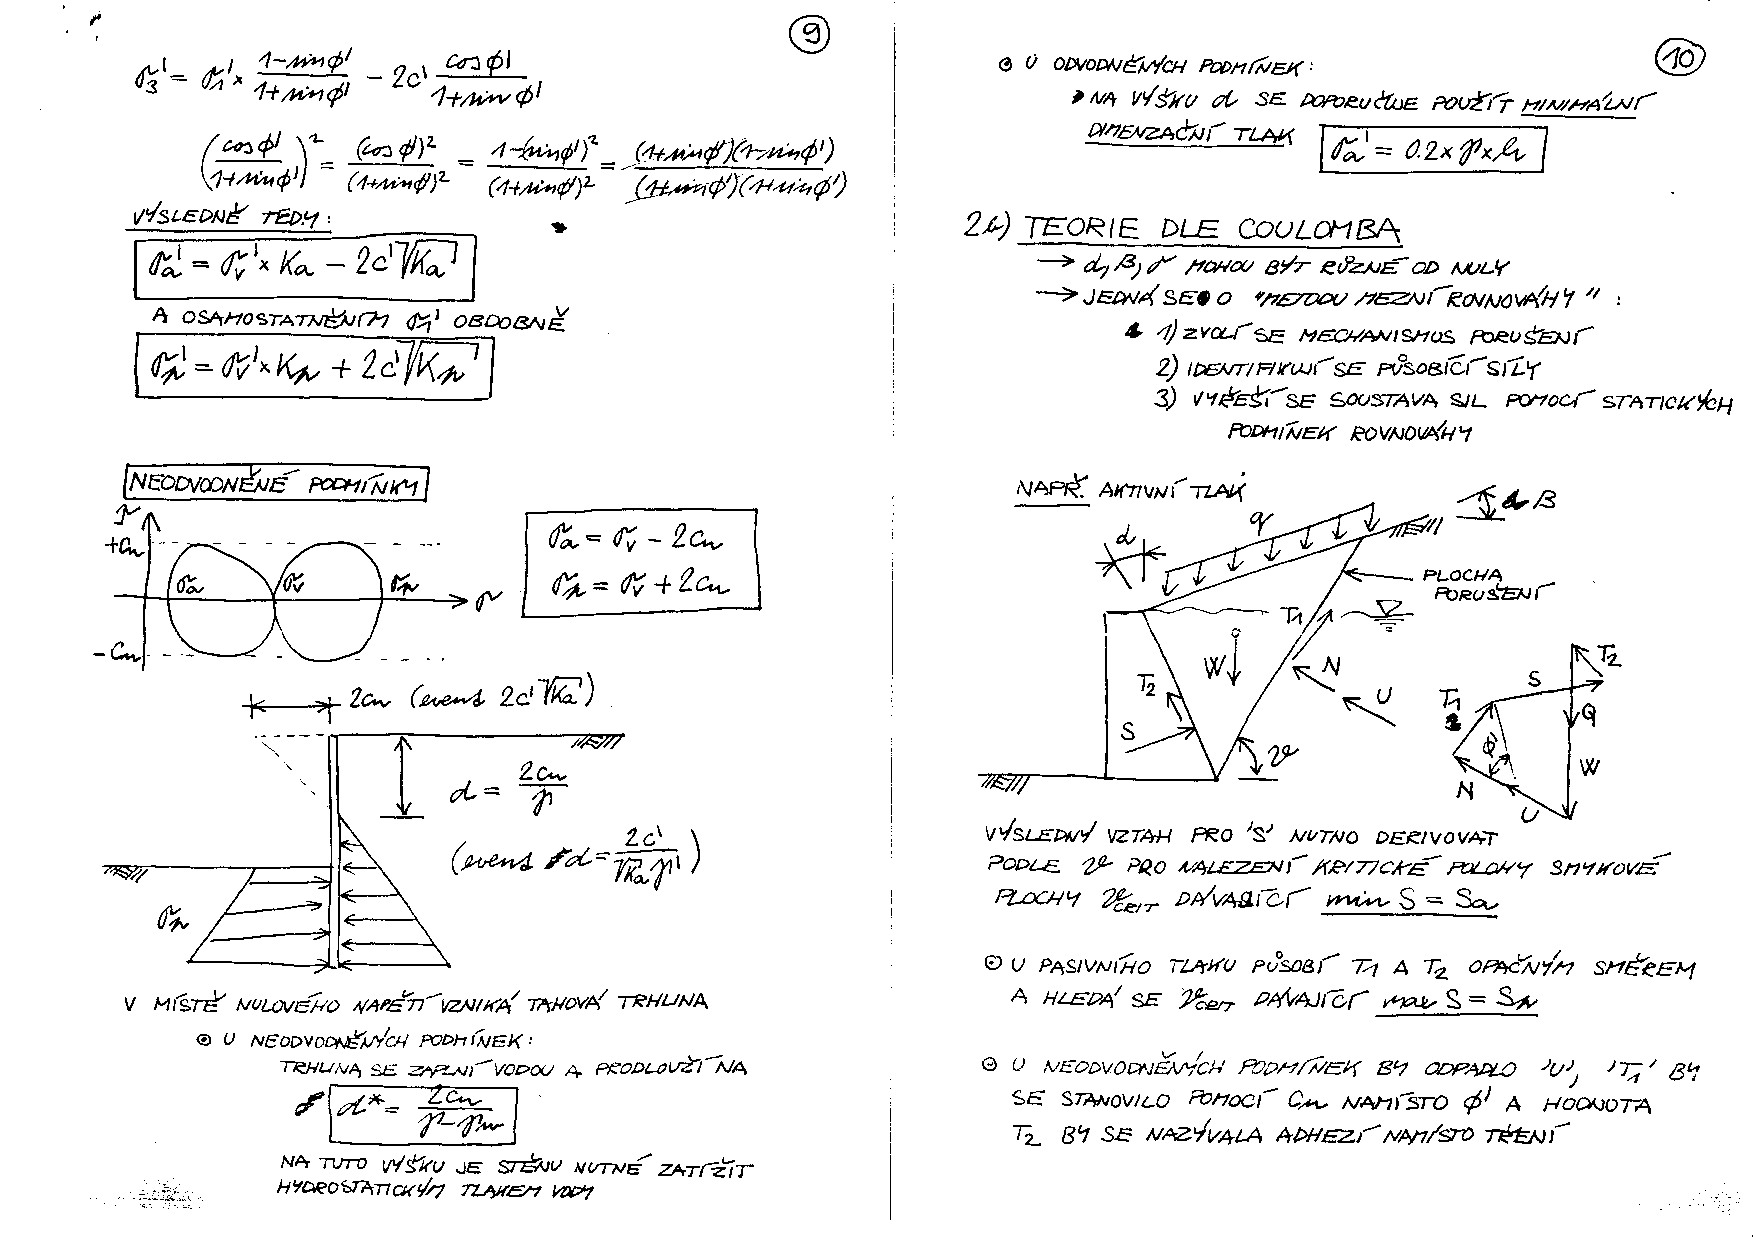 9
σ₃' = σ₁' × (1-sinφ')/(1+sinφ') - 2c' cosφ'/(1+sinφ')
(cosφ'/(1+sinφ'))² = (cosφ')²/(1+sinφ')² = 1-(sinφ')²/(1+sinφ')² = (1+sinφ')(1-sinφ')/(1+sinφ')(1+sinφ')
VÝSLEDNĚ TEDY:
σa' = σv' × Ka - 2c'√Ka
A OSAMOSTATNĚNÍM σ₁' OBDOBNĚ
σp' = σv' × Kp + 2c'√Kp
NEODVODNĚNÉ PODMÍNKY
τ
+Cu
σa σv σp
σ
-Cu
σa = σv - 2Cu
σp = σv + 2Cu
2Cu (event 2c'√Ka)
d = 2Cu/γ
(event d = 2c'/√Ka γ')
σp
V MÍSTĚ NULOVÉHO NAPĚTÍ VZNIKÁ TAHOVÁ TRHLINA
⊙ U NEODVODNĚNÝCH PODMÍNEK:
TRHLINA SE ZAPLNÍ VODOU A PRODLOUŽÍ NA
d* = 2Cu/γ-γw
NA TUTO VÝŠKU JE STĚNU NUTNÉ ZATÍŽIT
HYDROSTATICKÝM TLAKEM VODY
10
⊙ U ODVODNĚNÝCH PODMÍNEK:
NA VÝŠKU d SE DOPORUČUJE POUŽÍT MINIMÁLNÍ
DIMENZAČNÍ TLAK σa' = 0.2×γ×h
2b) TEORIE DLE COULOMBA
→ α, β, δ MOHOU BÝT RŮZNÉ OD NULY
→ JEDNÁ SE O "METODU MEZNÍ ROVNOVÁHY":
1) ZVOLÍ SE MECHANISMUS PORUŠENÍ
2) IDENTIFIKUJÍ SE PŮSOBÍCÍ SÍLY
3) VYŘEŠÍ SE SOUSTAVA SIL POMOCÍ STATICKÝCH
PODMÍNEK ROVNOVÁHY
NAPŘ. AKTIVNÍ TLAK
α
q
β
PLOCHA
PORUŠENÍ
T₁
W
N
U
T₂
S
ϑ
T₂
S
T₁
Q
φ'
W
N
U
VÝSLEDNÝ VZTAH PRO 'S' NUTNO DERIVOVAT
PODLE ϑ PRO NALEZENÍ KRITICKÉ POLOHY SMYKOVÉ
PLOCHY ϑCRIT DÁVAJÍCÍ min S = Sa
⊙ U PASIVNÍHO TLAKU PŮSOBÍ T₁ A T₂ OPAČNÝM SMĚREM
A HLEDÁ SE ϑCRIT DÁVAJÍCÍ max S = Sp
⊙ U NEODVODNĚNÝCH PODMÍNEK BY ODPADLO 'U', 'T₁' BY
SE STANOVILO POMOCÍ Cu NAMÍSTO φ' A HODNOTA
T₂ BY SE NAZÝVALA ADHEZÍ NAMÍSTO TŘENÍ